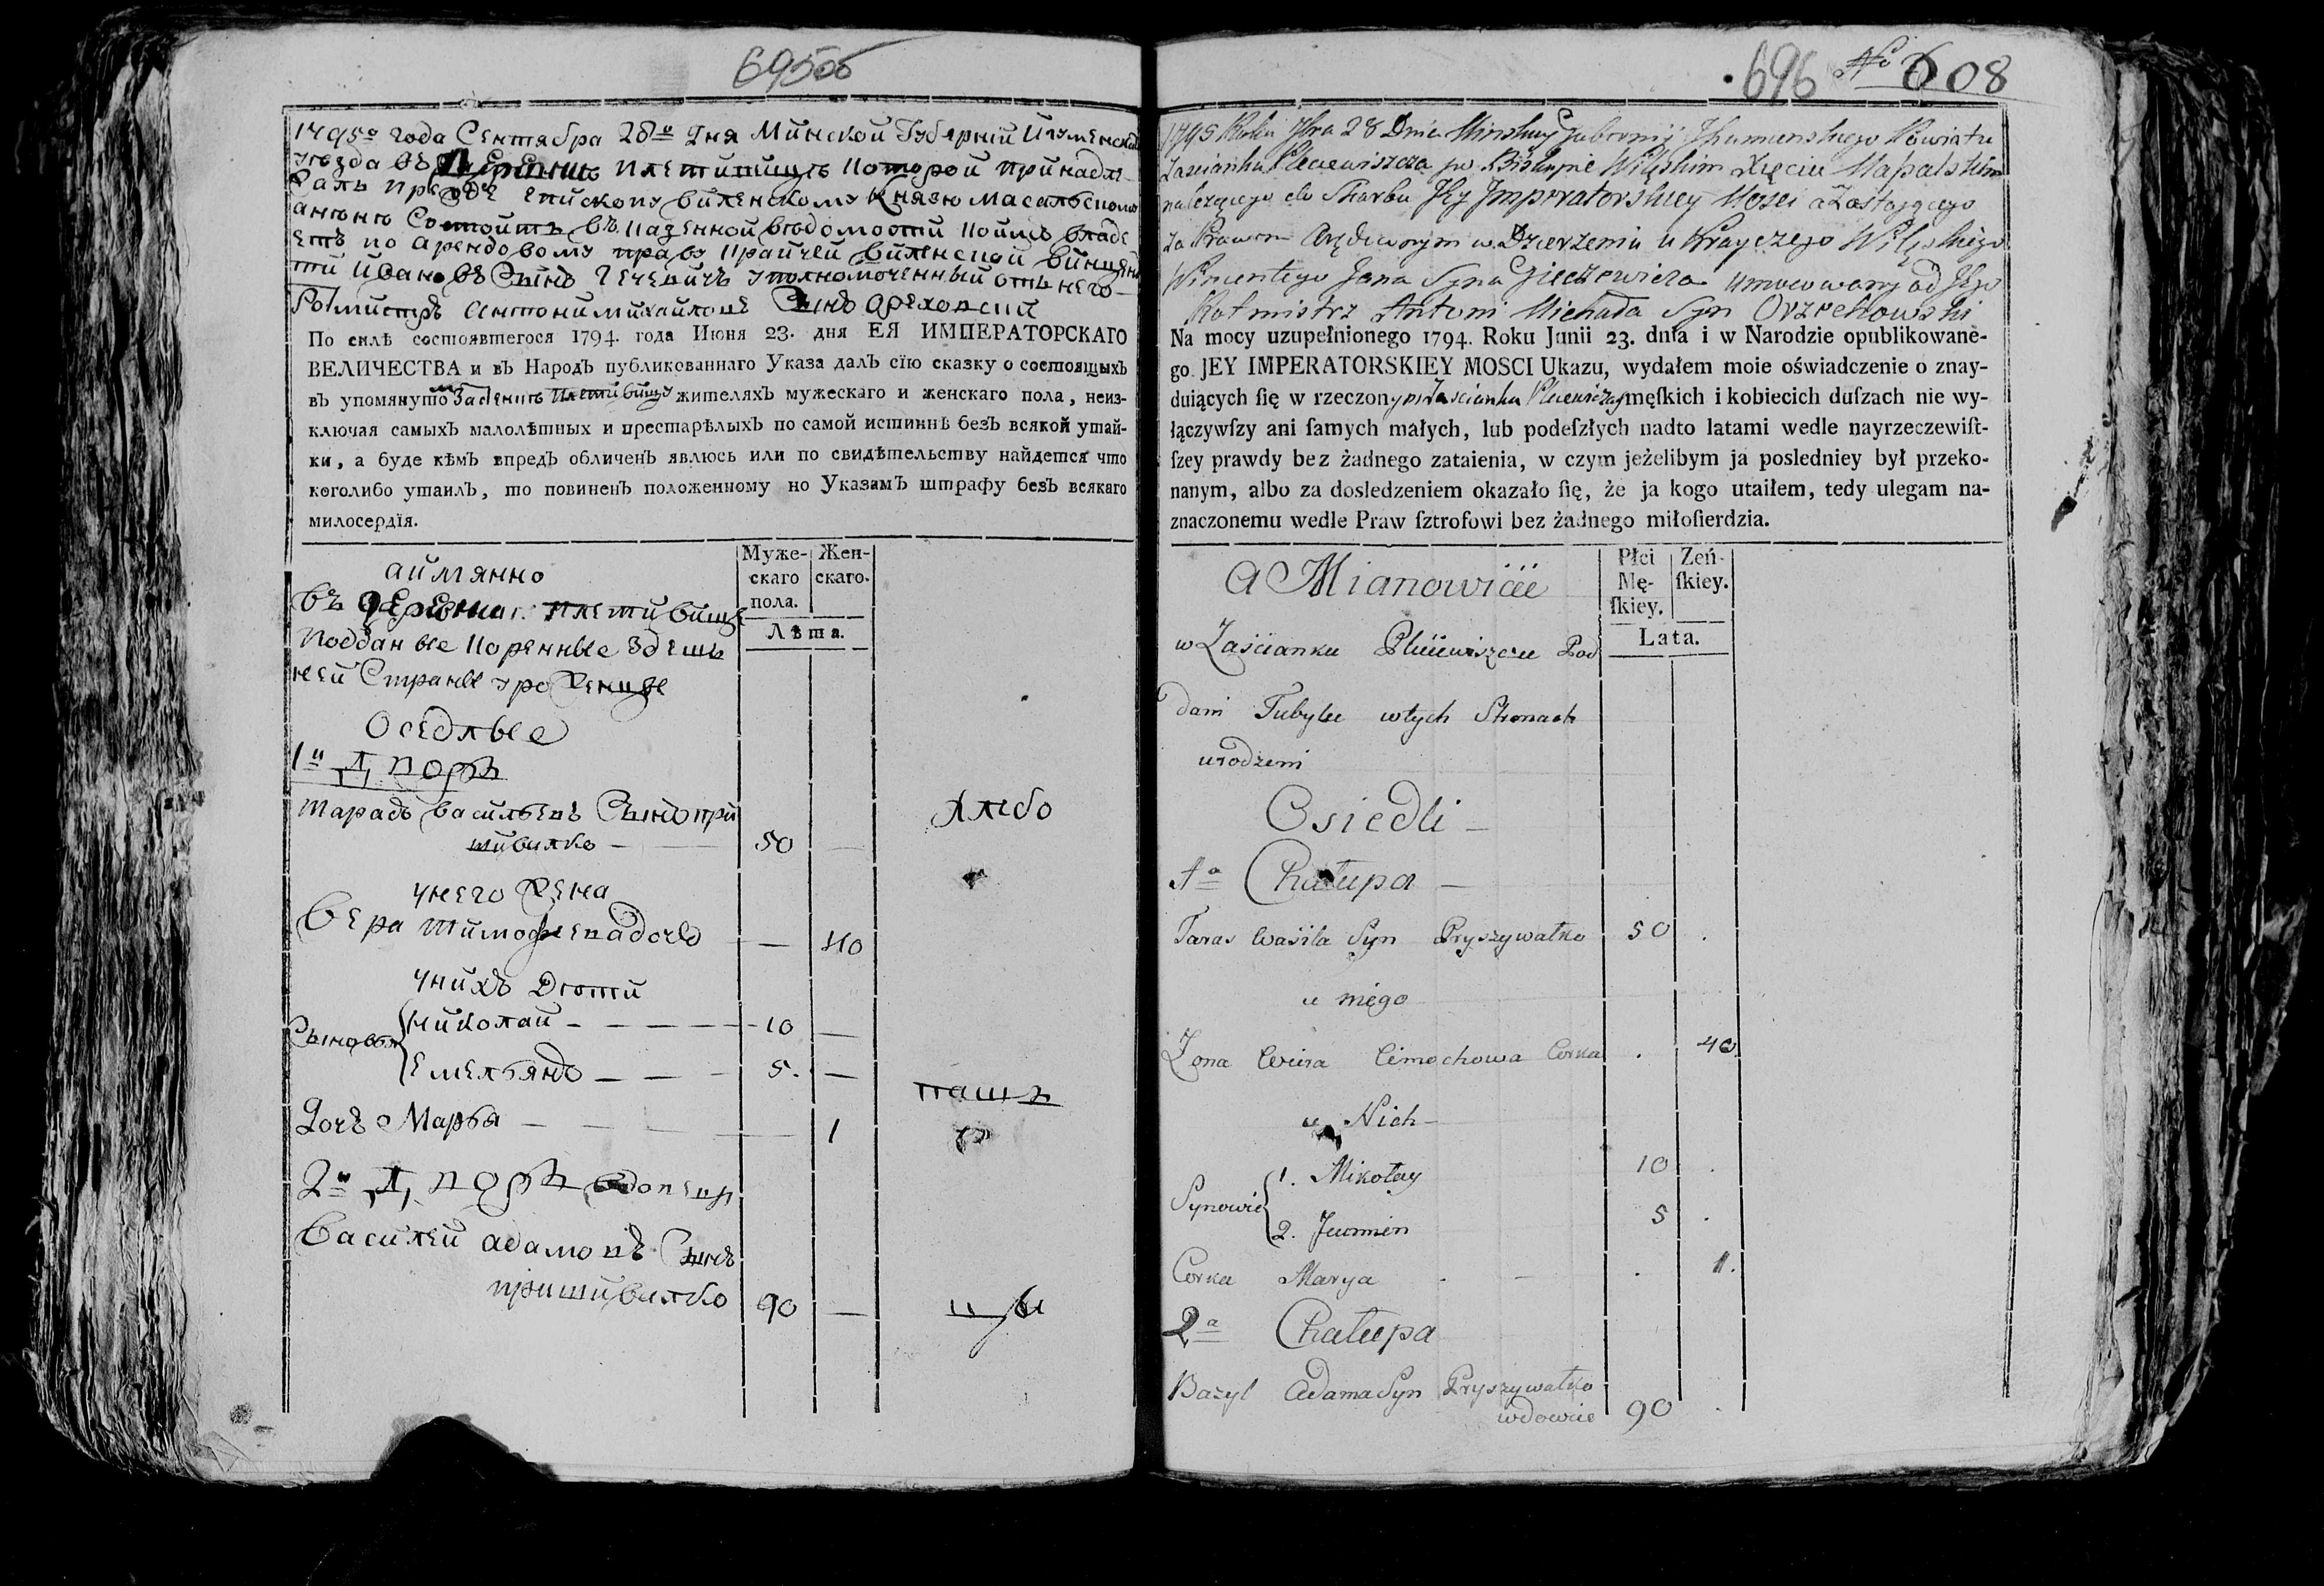 695об
1795го года Сентября 28го дня Минской Губерний Игуменска
уезда въ деревни которой принадле
жалъ прежде епископу виленскому Князю Масальскому
Состоитъ въ казенной ведомости коимъ владе
етъ по арендовому праву крайчей виленской винцен
тий Ивановъ Сынъ Гечевичъ уполномоченный отъ него
Ротмистръ Антоний михайловъ Сынъ ореховский
По силѣ состоявшегося 1794. года Июня 23. дня ЕЯ ИМПЕРАТОРСКАГО
ВЕЛИЧЕСТВА и въ Народъ публикованнаго Указа далъ сїю сказку о состоящыхъ
въ упомянуто жителяхъ мужескаго и женскаго пола, неиз-
ключая самыхъ малолѣтных и престарѣлыхъ по самой истиннѣ безъ всякой утай-
ки, а буде кѣмъ впредъ обличенъ явлюсь или по свидѣтельству найдется что
коголибо утаилъ, то повиненъ положенному по Указамъ штрафу безъ всякаго
милосердїя.
Муже-
скаго
пола.
Жен-
скаго.
Лѣта.
аймянно
въ деревни
Подданые коренные здешъ
ней Страны уроженцы
Оседлые
1й Дворъ
Тарасъ васильевъ Сынъ при
шивалко — 50 —
Хлебо
унего жена
Вера тимофеева дочь — 40
унихъ Дети
Сыновья
николай — 10 —
Емельянъ — 5. —
пашъ
Дочь Марья — 1
2й Дворъ вдовецъ
Василей адамовъ Сынъ
пришивалко 90 —
цы
696 No 608
1795 Roku 7bra 28 Dnia Minskiey Gubernij Jhumenskiego Powiatu
Zascianku Pleciewiszcza po Biskupie Wileskim Xięciu Masalskim
należącego do Skarbu Jey Jmperatorskiey Mosci a Zostaiącego
za Prawem w Dzierżeniu u Krayczego Wileskiego
Wincentego Jana Syna Gieczewicza umocowany od Jego
Rotmistrz Antoni Michała Syn Orzechowski
Na mocy uzupełnionego 1794. Roku Junii 23. dnia i w Narodzie opublikowane-
go JEY IMPERATORSKIEY MOSCI Ukazu, wydałem moie oświadczenie o znay-
duiących ſię w rzeczonym Zascianku męſkich i kobiecich duſzach nie wy-
łączywſzy ani ſamych małych, lub podeſzłych nadto latami wedle nayrzeczewiſt-
ſzey prawdy bez żadnego zataienia, w czym jeżelibym ja posledniey był przeko-
nanym, albo za dosledzeniem okazało ſię, że ja kogo utaiłem, tedy ulegam na-
znaczonemu wedle Praw ſztrofowi bez żadnego miłoſierdzia.
Płci
Mę-
ſkiey.
Zeń-
ſkiey.
Lata.
A Mianowicie
w Zaścianku Pod
dani Tubylce wtych Stronach
urodzeni
Osiedli
1a Chałupa
Taras Wasila Syn Pryszywałko 50 .
u niego
Zona Wiera Cimochowa Corka . 40
u Nich
Synowie
1. Mikołay 10 .
2. Jewmien 5 .
Corka Marya . 1.
2a Chałupa
Bazyl Adama Syn Pryszywałko
wdowiec 90 .